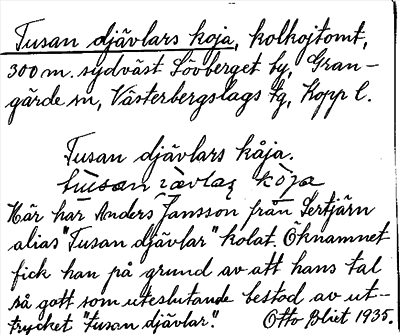 Tusan djävlars koja, kolkojtomt,
300 m. sydväst Lövberget by, Gran-
gärde sn, Västerbergslags tg, Kopp l.
Tusan djävlars kåja.
Här har Anders Jansson från Sertjärn
alias "Tusan djävlar" kolat. Öknamnet
fick han på grund av att hans tal
så gott som uteslutande bestod av ut-
trycket "tusan djävlar". Otto Blixt 1935.